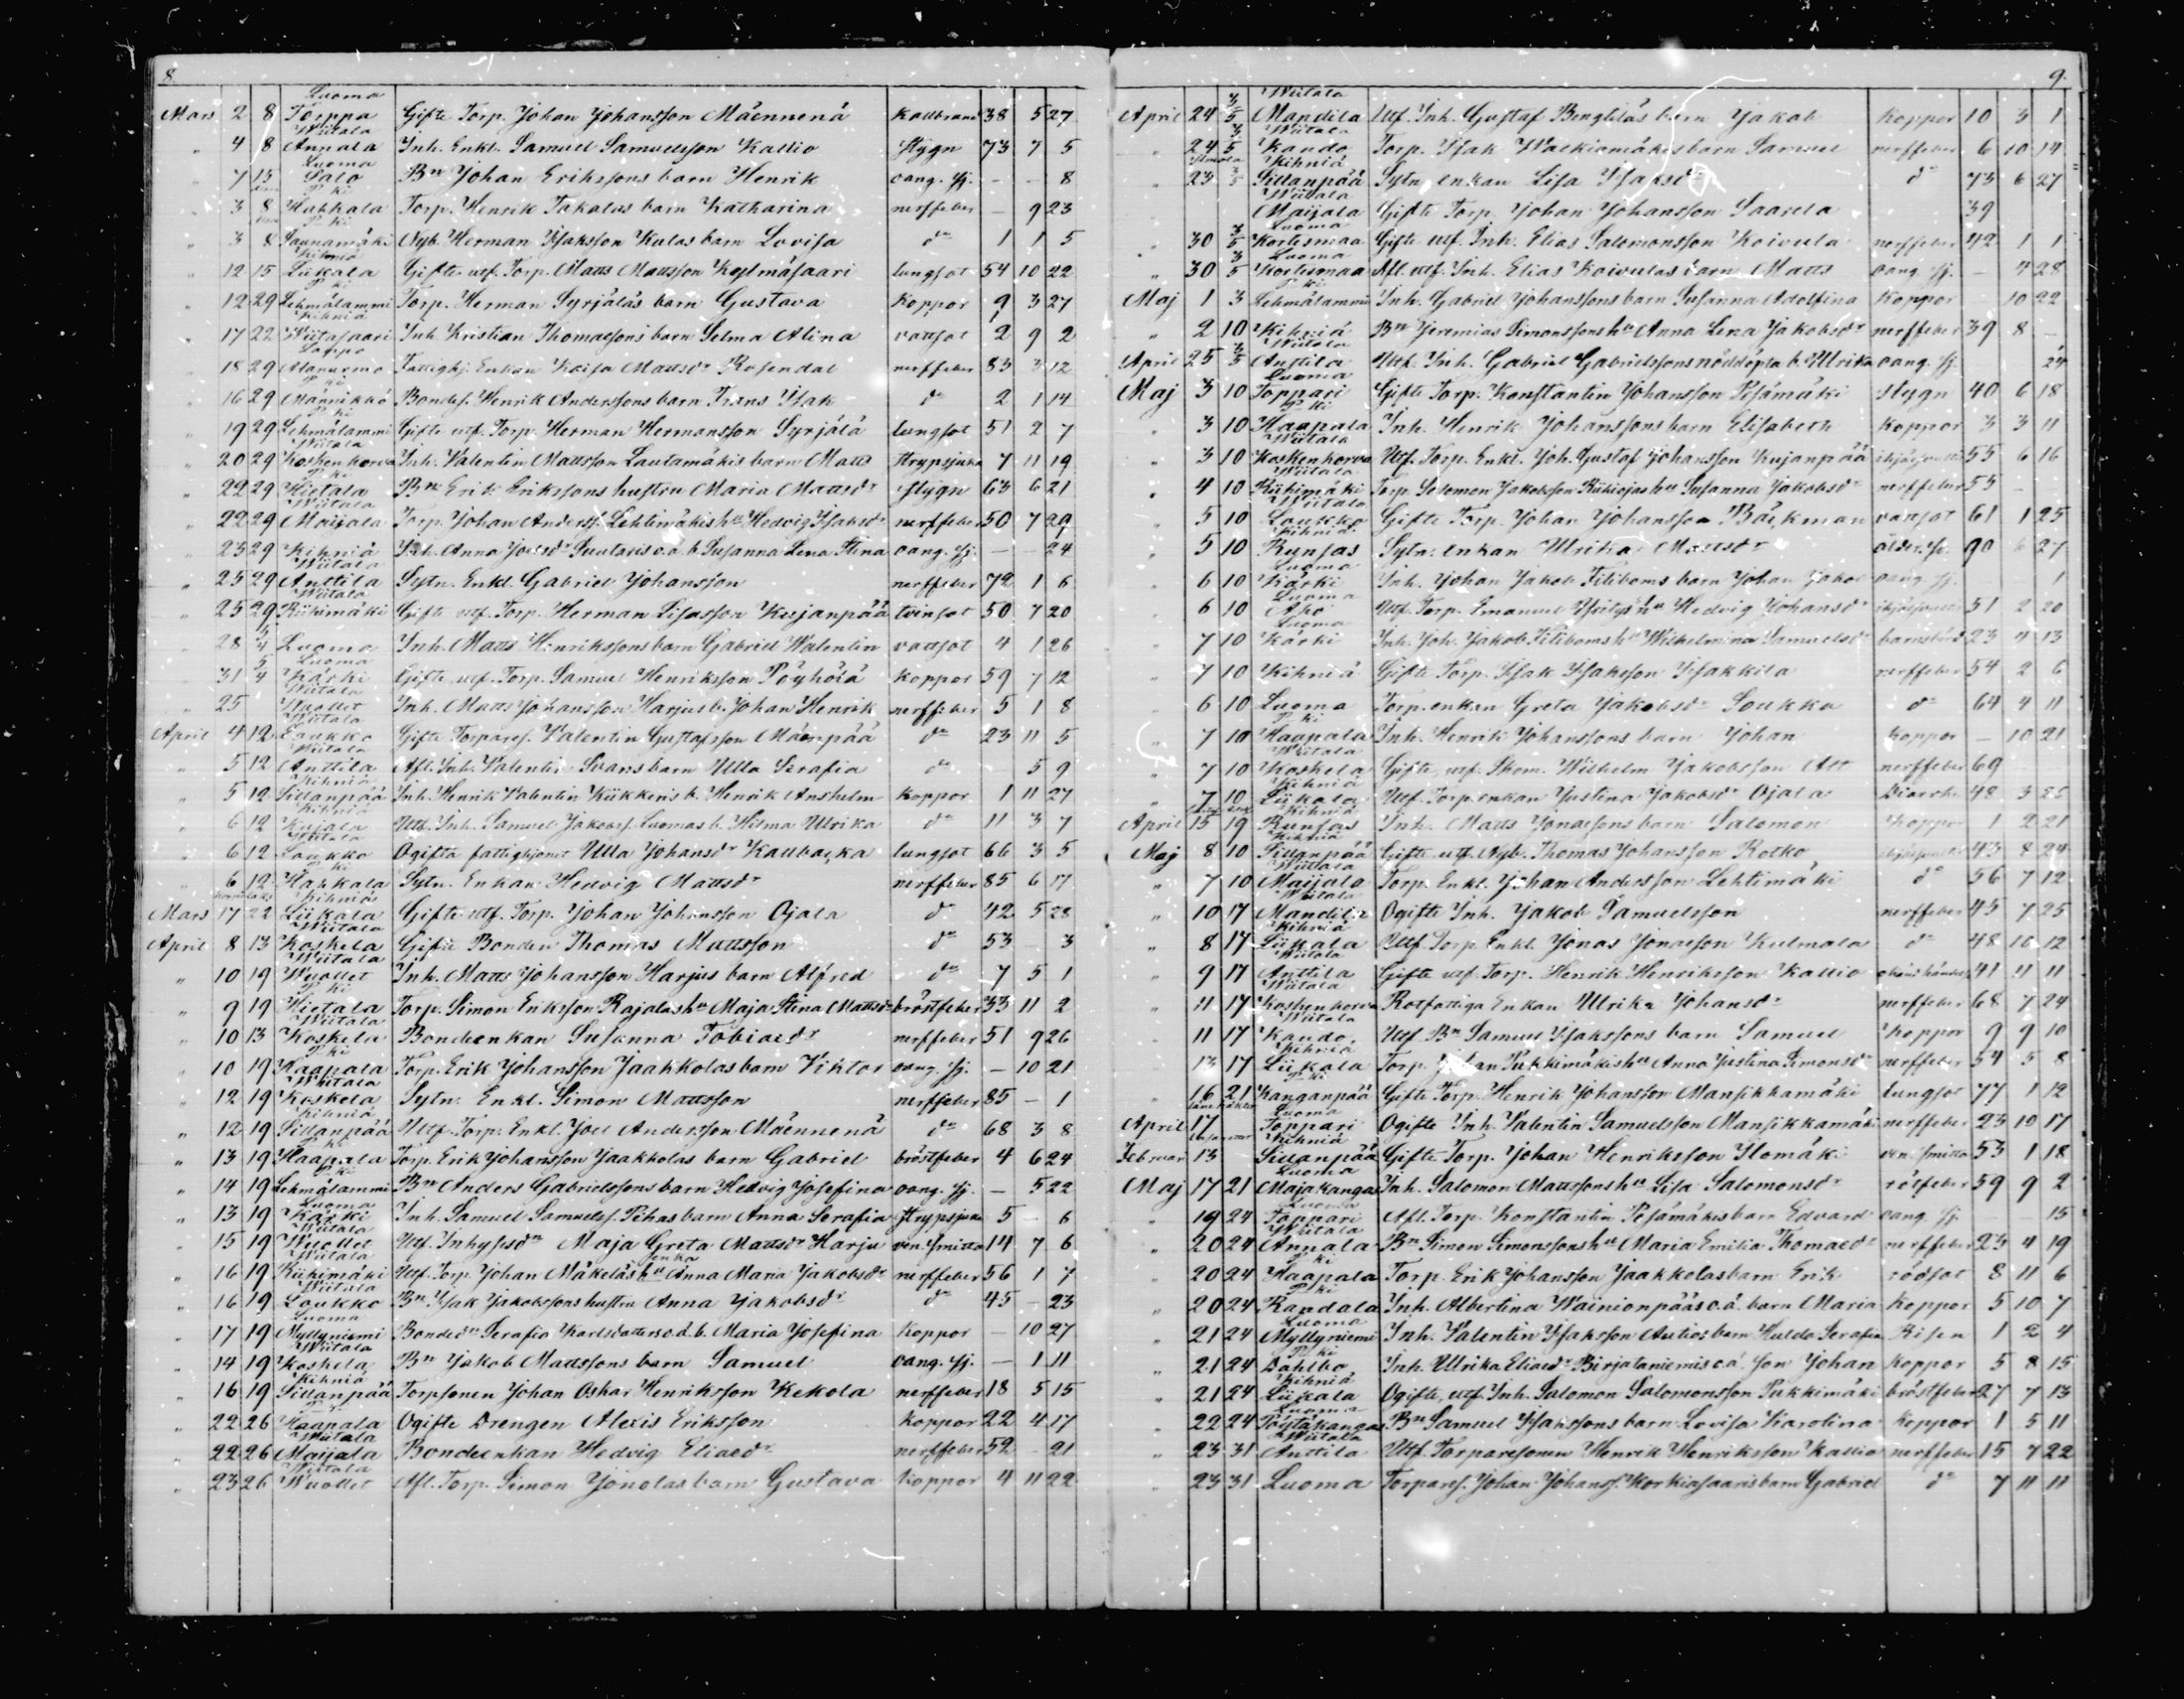 8.
Luoma
Mars 2 8 Torppa Gifte Torp. Johan Johansson Mäennenä kallbrand 38 5 27
Wiitala
" 4 8 Annala Inh. Enkl. Samuel Samuelsson Kallio stygn 73 7 5
Luoma
" 7 15 Salo Bn Johan Erikssons barn Henrik oang. sj. - - 8
P. ki
" 3 8 Hahkala Torp. Henrik Takalas barn Katharina nerffeber - 9 23
P. ki
" 3 8 Saunamäki Nyb. Herman Isaksson Kulas barn Lovisa do 1 1 5
Kihniä
" 12 15 Liikala Gifte utf. Torp. Matts Mattsson Kylmäsaari lungsot 54 10 22
P. ki
" 12 29 Lehmälammi Torp. Herman Syrjäläs barn Gustava koppor 9 3 27
Kihniä
" 17 22 Wiitasaari Inh. Kristian Thomassons barn Selma Alina vattsot 2 9 2
" 18 29 Alanurmo Fattighj. Enkan Kaisa Mattsdr Rosendal nerffeber 83 3 12
P. ki
" 16 29 Mannikkö Bondes. Henrik Anderssons barn Frans Isak do 2 1 14
P. ki
" 19 29 Lehmälammi Gifte utf. Torp. Herman Hermansson Syrjälä lungsot 51 2 7
Wiitala
" 20 29 Koskenkorva Inh. Valentin Mattsson Lautamäkis barn Matts strypsjuka 7 11 19
P. ki
" 22 29 Hietala Bn Erik Erikssons hustru Maria Mattsdr stygn 63 6 21
Wiitala
" 22 29 Maijala Torp. Johan Anderss. Lehtimäkis hu Hedvig Isaksdr nerffeber 50 7 29
" 23 29 Kihniä Inh. Anna Joelsdr Suutaris o.ä. b. Susanna Lena Stina oang. sj. - - 24
Wiitala
" 25 29 Anttila Sytn. Enkl. Gabriel Johansson nerffeber 72 1 6
Wiitala
" 25 29 Riihimäki Gifte utf. Torp. Herman Kujanpää tvinsot 50 7 20
" 28 5/4 Luoma Inh. Matts Henrikssons barn Gabriel Walentin vattsot 4 1 26
Luoma
" 31 5/4 Kärki Gifte utf. Torp. Samuel Henriksson Pöyhölä koppor 59 7 12
Wiitala
" 25 Wuollet Inh. Matts Johansson Harjus b. Johan Henrik nerffeber 5 1 8
Wiitala
April 4 12 Loukko Gifte Torpares. Valentin Gustafsson Mäenpää do 23 11 5
Wiitala
" 5 12 Anttila Afl. Inh. Valentin Svans barn Ulla Serafia do 5 9
Kihniä
" 5 12 Sillanpää Inh. Henrik Valentin Kiikkeris b. Henrik Anshelm koppor 1 11 27
Kihniä
" 6 12 Utf. Inh. Samuel Jakobss. Luomas b. Hilma Ulrika do 11 3 7
Wiitala
" 6 12 Loukko Ogifta fattighjonet Ulla Johansdr Kaubacka lungsot 66 3 5
P. ki
" 6 12 Hahkala Sytn. Enkan Hedvig Mattsdr nerffeber 85 6 17
Kihniä
Mars 17 22 Liikala Gifte utf. Torp. Johan Johansson Ojala do 42 5 28
Wiitala
April 8 13 Koskela Gifte Bonden Thomas Mattsson do 53 - 3
Wiitala
" 10 19 Wuollet Inh. Matts Johansson Harjus barn Alfred do 7 5 1
P. ki
" 9 19 Hietala Torp. Simon Eriksson Rajalas hu Maja Stina Mattsdr bröstfeber 33 11 2
Wiitala
" 10 13 Koskela Bondeenkan Susanna Tobiaedr nerffeber 51 9 26
P. ki
" 10 19 Haapala Torp. Erik Johansson Jaakkolas barn Viktor oang. sj. - 10 21
Wiitala
" 12 19 Koskela Sytn. Enkl. Simon Mattsson nerffeber 85 - 1
Kihniä
" 12 19 Sillanpää Utf. Torp. Enkl. Joel Andersson Mäennenä do 68 3 8
P. ki
" 13 19 Haapala Torp. Erik Johansson Jaakkolas barn Gabriel bröstfeber 4 6 24
P. ki
" 14 19 Lehmälammi Bn Anders Gabrielssons barn Hedvig Josefina oang. sj. - 5 22
Luoma
" 13 19 Kärki Inh. Samuel Samuelss. Pihas barn Anna Serafia strypsjuka 5 - 6
Wiitala
" 15 19 Wuollet Utf. Inhysesdn Maja Greta Mattsdr Harju ven. smitta 14 7 6
Wiitala enka
" 16 19 Riihimäki Utf. Torp. Johan Mäkeläs hu Anna Maria Jakobsdr nerffeber 56 1 7
Wiitala
" 16 19 Loukko Bn Isak Jakobssons hustru Anna Jakobsdr do 45 - 23
Luoma
" 17 19 Myllyniemi Bondedn Serafia Karlsdotters o.ä. b. Maria Josefina koppor - 10 27
Wiitala
" 14 19 Koskela Bn Jakob Mattssons barn Samuel oang. sj. - 1 11
Kihniä
" 16 19 Sillanpää Torpsonen Johan Oskar Henriksson Kekola nerffeber 18 5 15
" 22 26 Haapala Ogifte Drengen Alexis Eriksson koppor 22 4 17
Wiitala
" 22 26 Maijala Bondeenkan Hedvig Eliaedr nerffeber 52 - 21
Wiitala
" 23 26 Wuollet Afl. Torp. Simon Jonolas barn Gustava koppor 4 11 22
9.
Wiitala
April 24 3/5 Mandila Utf. Inh. Gustaf Bengtläs barn Jakob koppor 10 3 1
Wiitala
" 24 3/5 Kando Torp. Isak Walkiamäkis barn Samuel nerffeber 6 10 14
Kihniä
" 23 3/5 Sillanpää Sytn. enkan Lisa Isaksdr do 73 6 27
Wiitala
Maijala Gifte Torp. Johan Johansson Saarela 39
Luoma
" 30 3/5 Kortesmaa Gifte utf. Inh. Elias Salomonsson Koivula nerffeber 42 1 1
Luoma
" 30 3/5 Kortesmaa Afl. utf. Inh. Elias Koivulas barn Matts oang. sj. - 4 28
P. ki
Maj 1 3 Lehmälammi Inh. Gabriel Johanssons barn Susanna Adolfina koppor 10 22
" 2 10 Kihniä Bn Jeremias Simonssons hu Anna Lena Jakobsdr nerffeber 39 8 -
Wiitala
April 25 3/5 Anttila Utf. Inh. Gabriel Gabrielssons nöddöpta b. Ulrika oang. sj. 24
Luoma
Maj 3 10 Toppari Gifte Torp. Konstantin Johansson Pesämäki stygn 40 6 18
P. ki
" 3 10 Haapala Inh. Henrik Johanssons barn Elisabeth koppor 3 3 11
Wiitala
" 3 10 Koskenkorva Utf. Torp. Enkl. Joh. Gustaf Johansson Kujanpää 55 6 16
Wiitala
" 4 10 Riihimäki Torp. Salomon Jakobsson Riihiojas hu Susanna Jakobsdr nerffeber 55 - -
Wiitala
" 5 10 Loukko Gifte Torp. Johan Johansson Bäckman vattsot 61 1 25
Kihniä
" 5 10 Runsas Sytn. enkan Ulrika Mattsdr ålder. sv. 90 6 27
Luoma
" 6 10 Kärki Inh. Johan Jakob Filiboms barn Johan Jakob oang. sj. 1
Luoma
" 6 10 Aho Utf. Torp. Emanuel hu Hedvig Johansdr 51 2 20
Luoma
" 7 10 Kärki Inh. Joh. Jakob Filiboms hu Wilhelmina Samuelsdr barnsbörd 23 4 13
" 7 10 Kihniä Gifte Torp. Isak Isaksson Isakkila nerffeber 54 2 6
" 6 10 Luoma Torp. enkan Greta Jakobsdr Soukka do 64 4 11
P. ki
" 7 10 Haapala Inh. Henrik Johanssons barn Johan koppor - 10 21
Wiitala
" 7 10 Koskela Gifte, utf. Skom. Wilhelm Jakobsson Alt nerffeber 69
Kihniä
" 7 10 Liikala Utf. Torp. enkan Justina Jakobsdr Ojala Diarrh. 48 3 25
Kihniä
April 15 19 Runsas Inh. Matts Jonaessons barn Salomon koppor 1 2 21
Kihniä
Maj 8 10 Sillanpää Gifte utf. Nyb. Thomas Johansson Kotko 43 8 24
Wiitala
" 7 10 Maijala Torp. Enkl. Johan Andersson Lehtimäki do 56 7 12
Wiitala
" 10 17 Mandila Ogifte Inh. Jakob Samuelsson nerffeber 45 7 25
Kihniä
" 8 17 Liikala Utf. Torp. Enkl. Jonas Jonaesson Kulmala do 48 10 12
Wiitala
" 9 17 Anttila Gifte utf. Torp. Henrik Henriksson Kallio 41 11 11
Wiitala
" 11 17 Koskenkorva Rotfattiga Enkan Ulrika Johansdr nerffeber 68 7 24
Wiitala
" 11 17 Kando Utf. Bn Samuel Isakssons barn Samuel koppor 9 9 10
Kihniä
" 13 17 Liikala Torp. Johan Pukkimäkis hu Anna Justina Simonsdr nerffeber 54 5 8
P. ki
" 16 21 Kanganpää Gifte Torp. Henrik Johansson Mansikkamäki lungsot 77 1 12
Luoma
April 17 Toppari Ogifte Inh. Valentin Samuelsson Mansikkamäki nerffeber 23 10 17
Kihniä
Februar 13 Sillanpää Gifte Torp. Johan Henriksson Ilomäki ven. smitta 53 1 18
Luoma
Maj 17 21 Majakangas Inh. Salomon Mattssons hu Lisa Salomonsdr rötfeber 59 9 2
Luoma
" 19 24 Toppari Afl. Torp. Konstantin Pesämäkis barn Edvard oang. sj. 15
Wiitala
" 20 24 Annala Bn Simon Simonssons hu Maria Emilia Thomaedr nerffeber 23 4 19
P. ki
" 20 24 Haapala Torp. Erik Johansson Jaakkolas barn Erik rödsot 8 11 6
P. ki
" 20 24 Randala Inh. Albertina Wainionpääs o.ä. barn Maria koppor 5 10 7
Luoma
" 21 24 Myllyniemi Inh. Valentin Isaksson Autios barn Hulda Serafia Risen 1 2 4
P. ki
" 21 24 Dahlbo Inh. Ulrika Eliaedr Pirjataniemis o.ä. son Johan koppor 5 8 15
Kihniä
" 21 24 Liikala Ogifte, utf. Inh. Salomon Salomonsson Pukkimäki bröstfeber 27 7 13
Luoma
" 22 24 Pöytäkangas Bn Samuel Isakssons barn Lovisa Karolina koppor 1 5 11
Wiitala
" 23 31 Anttila Utf. Torparesonen Henrik Henriksson Kallio nerffeber 15 7 22
" 23 31 Luoma Torpares. Johan Johanss. Korkiasaaris barn Gabriel do 7 11 11